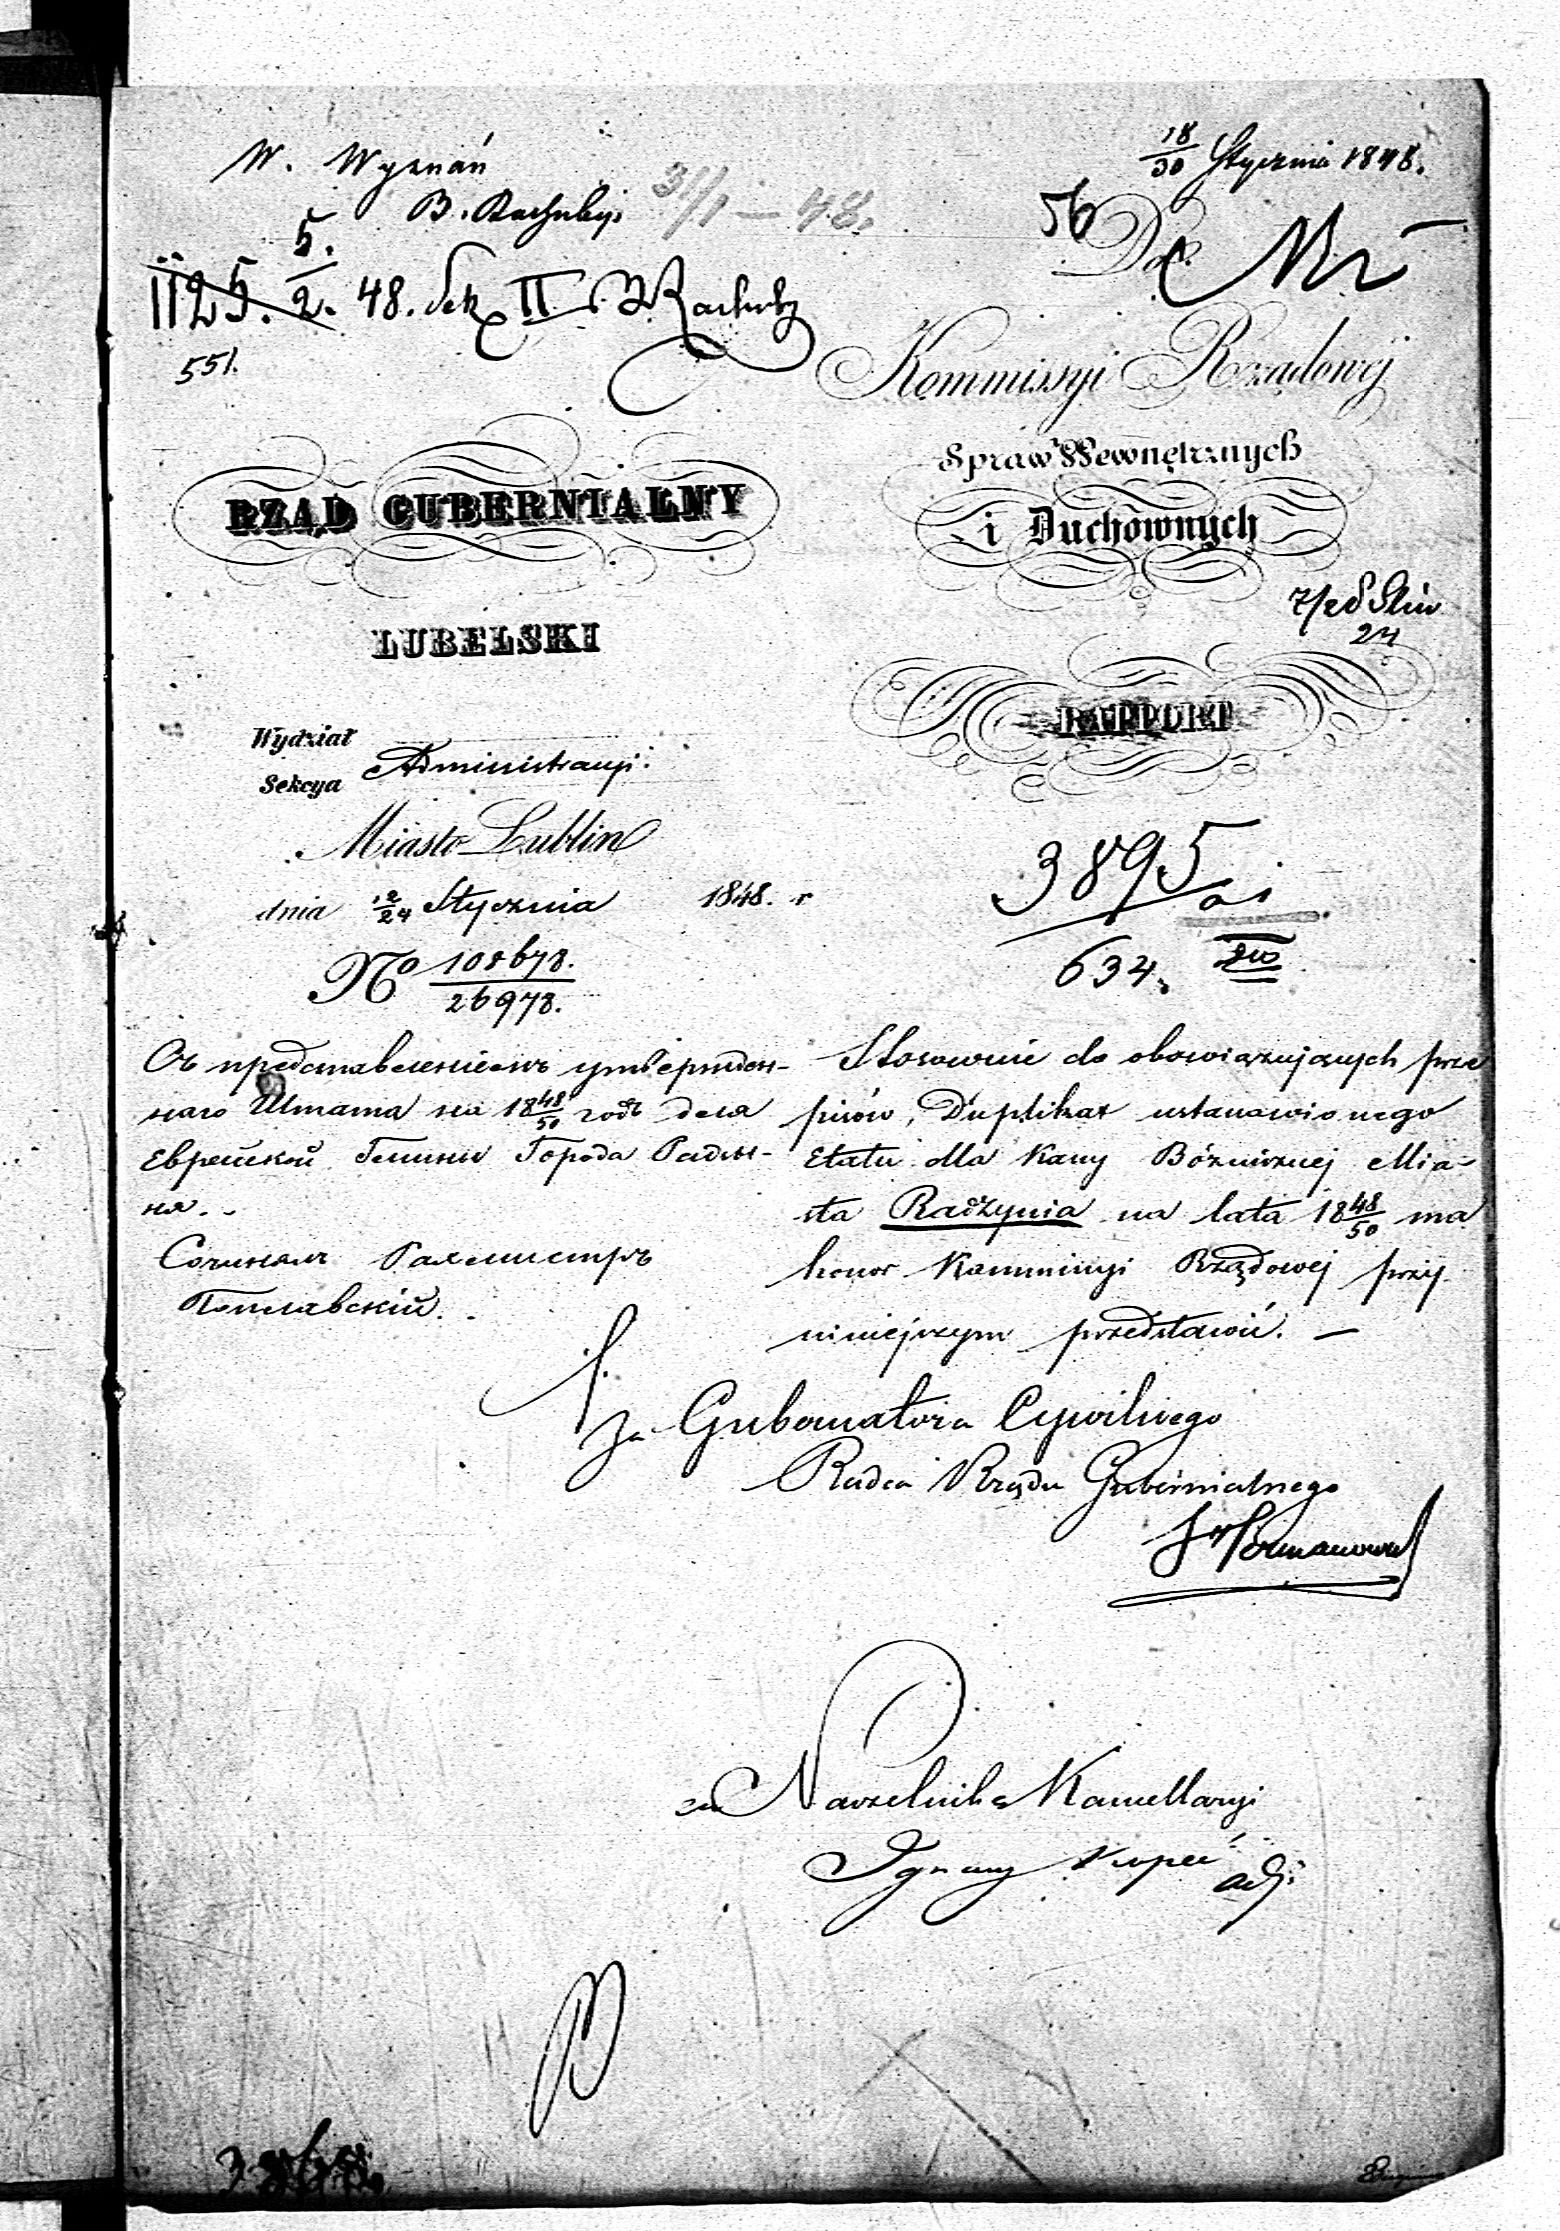 W. Wyznań
B. Rachuby.
31/1 – 48.
18/30 Stycznia 1848.
56
Do
1125. 5./2. 48. Sek II B. Rachuby
551.
Kommissyi Rządowéj
Spraw Wewnętrznych
i Duchownych
RZĄD GUBERNIALNY
LUBELSKI
RAPPORT
Wydział
Sekcya Administracyi.
Miasto Lublin
dnia 12/24 Stycznia 1848. r
No 108678./26978.
3895
634.
Съ представленіемъ утвержден-
наго Штата на 18 48/50 годъ для
Еврейской Гмины Города Радзы-
ня. -
Сочинялъ Рахмистръ
Поплавскій.
Stosownie do obowiązujących prze
pisów, Duplikat ustanowionego
Etatu dla Kassy Bóżniczej Mia-
sta Radzynia na lata 18 48/50 ma
honor Kommissyi Rządowej przy
niniejszym przedstawić. —
Za Gubernatora Cywilnego
Radca Rządu Gubernialnego
za Naczelnika Kancellaryi
Ignacy Kupeć adj: